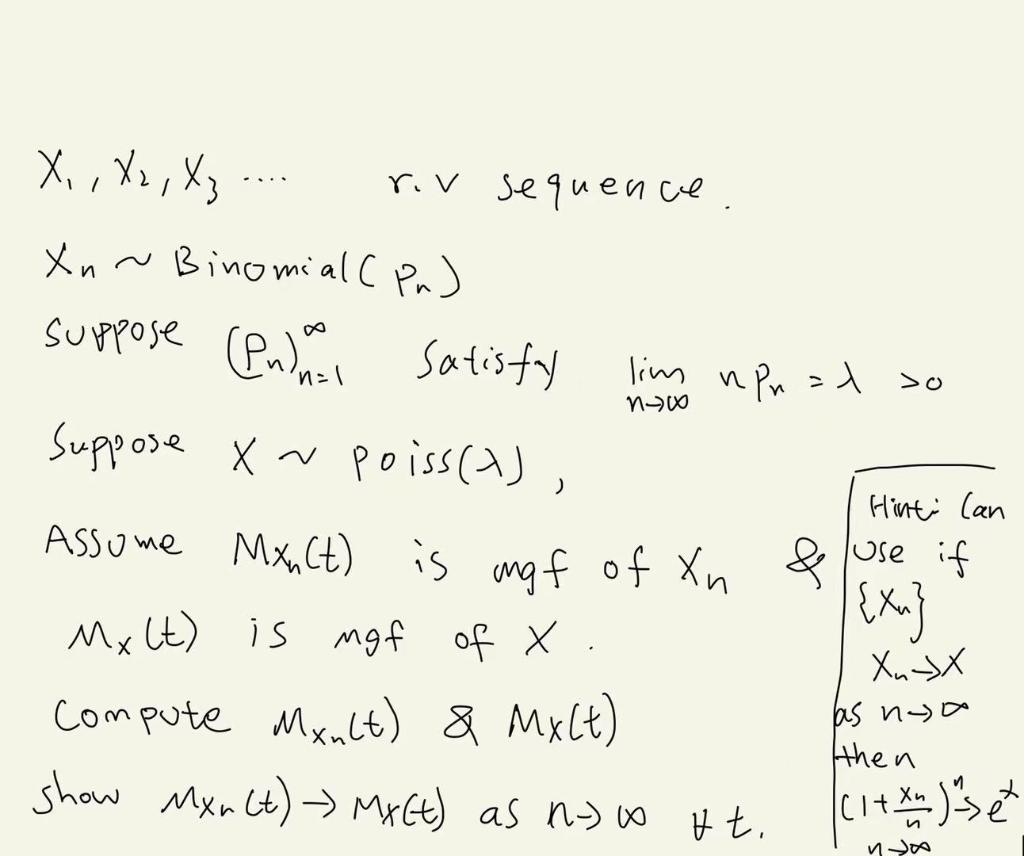 X₁, X₂, X₃ .... r.v sequence.
Xₙ ~ Binomial(Pₙ)
suppose (Pₙ)ₙ₌₁^∞ Satisfy lim n→∞ n Pₙ = λ >0
Suppose X ~ poiss(λ),
Assume M_{Xₙ}(t) is mgf of Xₙ &
M_X(t) is mgf of X.
Compute M_{Xₙ}(t) & M_X(t)
show M_{Xₙ}(t) → M_X(t) as n→∞ ∀ t.
Hint: Can
use if
{Xₙ}
Xₙ→X
as n→∞
then
(1+Xₙ/n)ⁿ→eˣ
n→∞